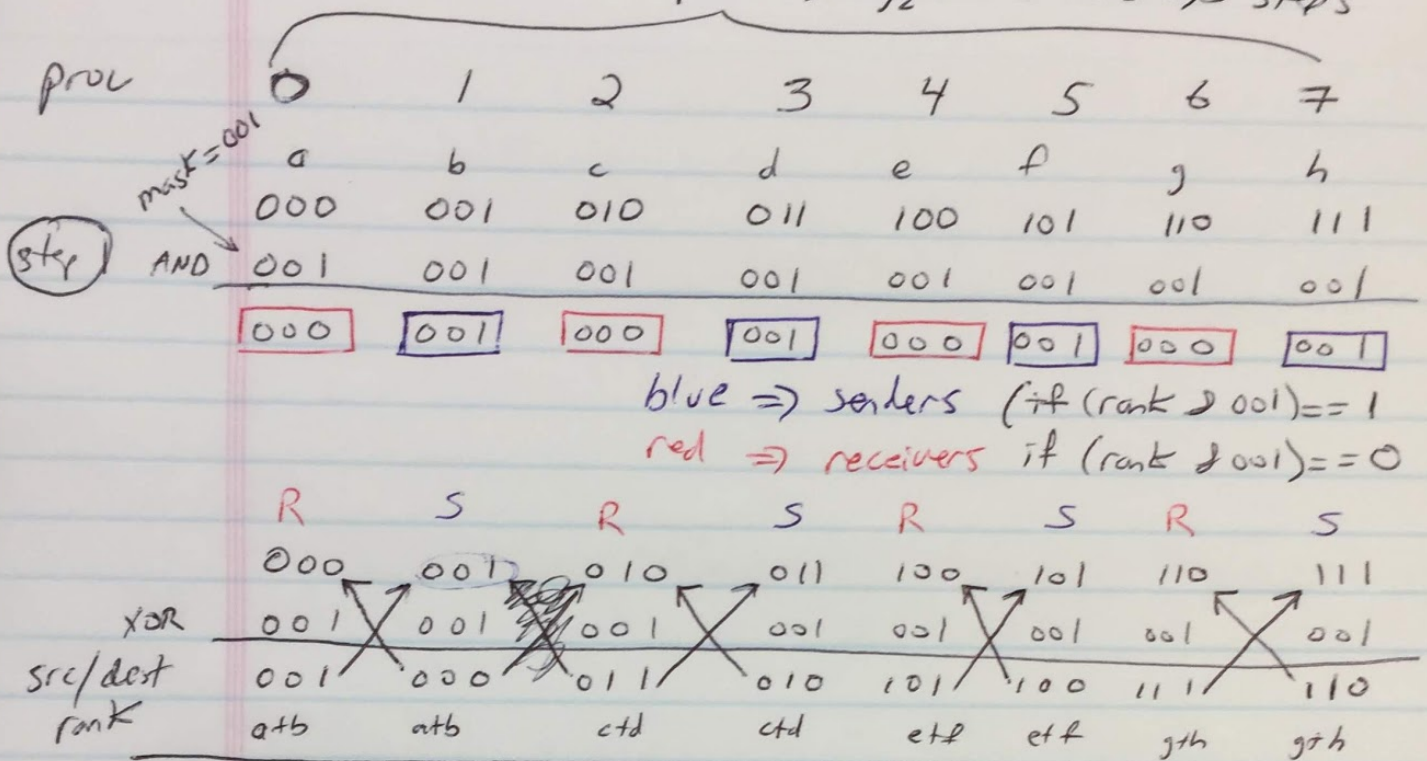 steps
proc 0 1 2 3 4 5 6 7
mask=001
a b c d e f g h
000 001 010 011 100 101 110 111
step 1 AND 001 001 001 001 001 001 001 001
000 001 000 001 000 001 000 001
blue => senders (if (rank & 001)==1
red => receivers if (rank & 001)==0
R S R S R S R S
000 001 010 011 100 101 110 111
XOR 001 001 001 001 001 001 001 001
src/dest 001 000 011 010 101 100 111 110
rank a+b a+b c+d c+d e+f e+f g+h g+h